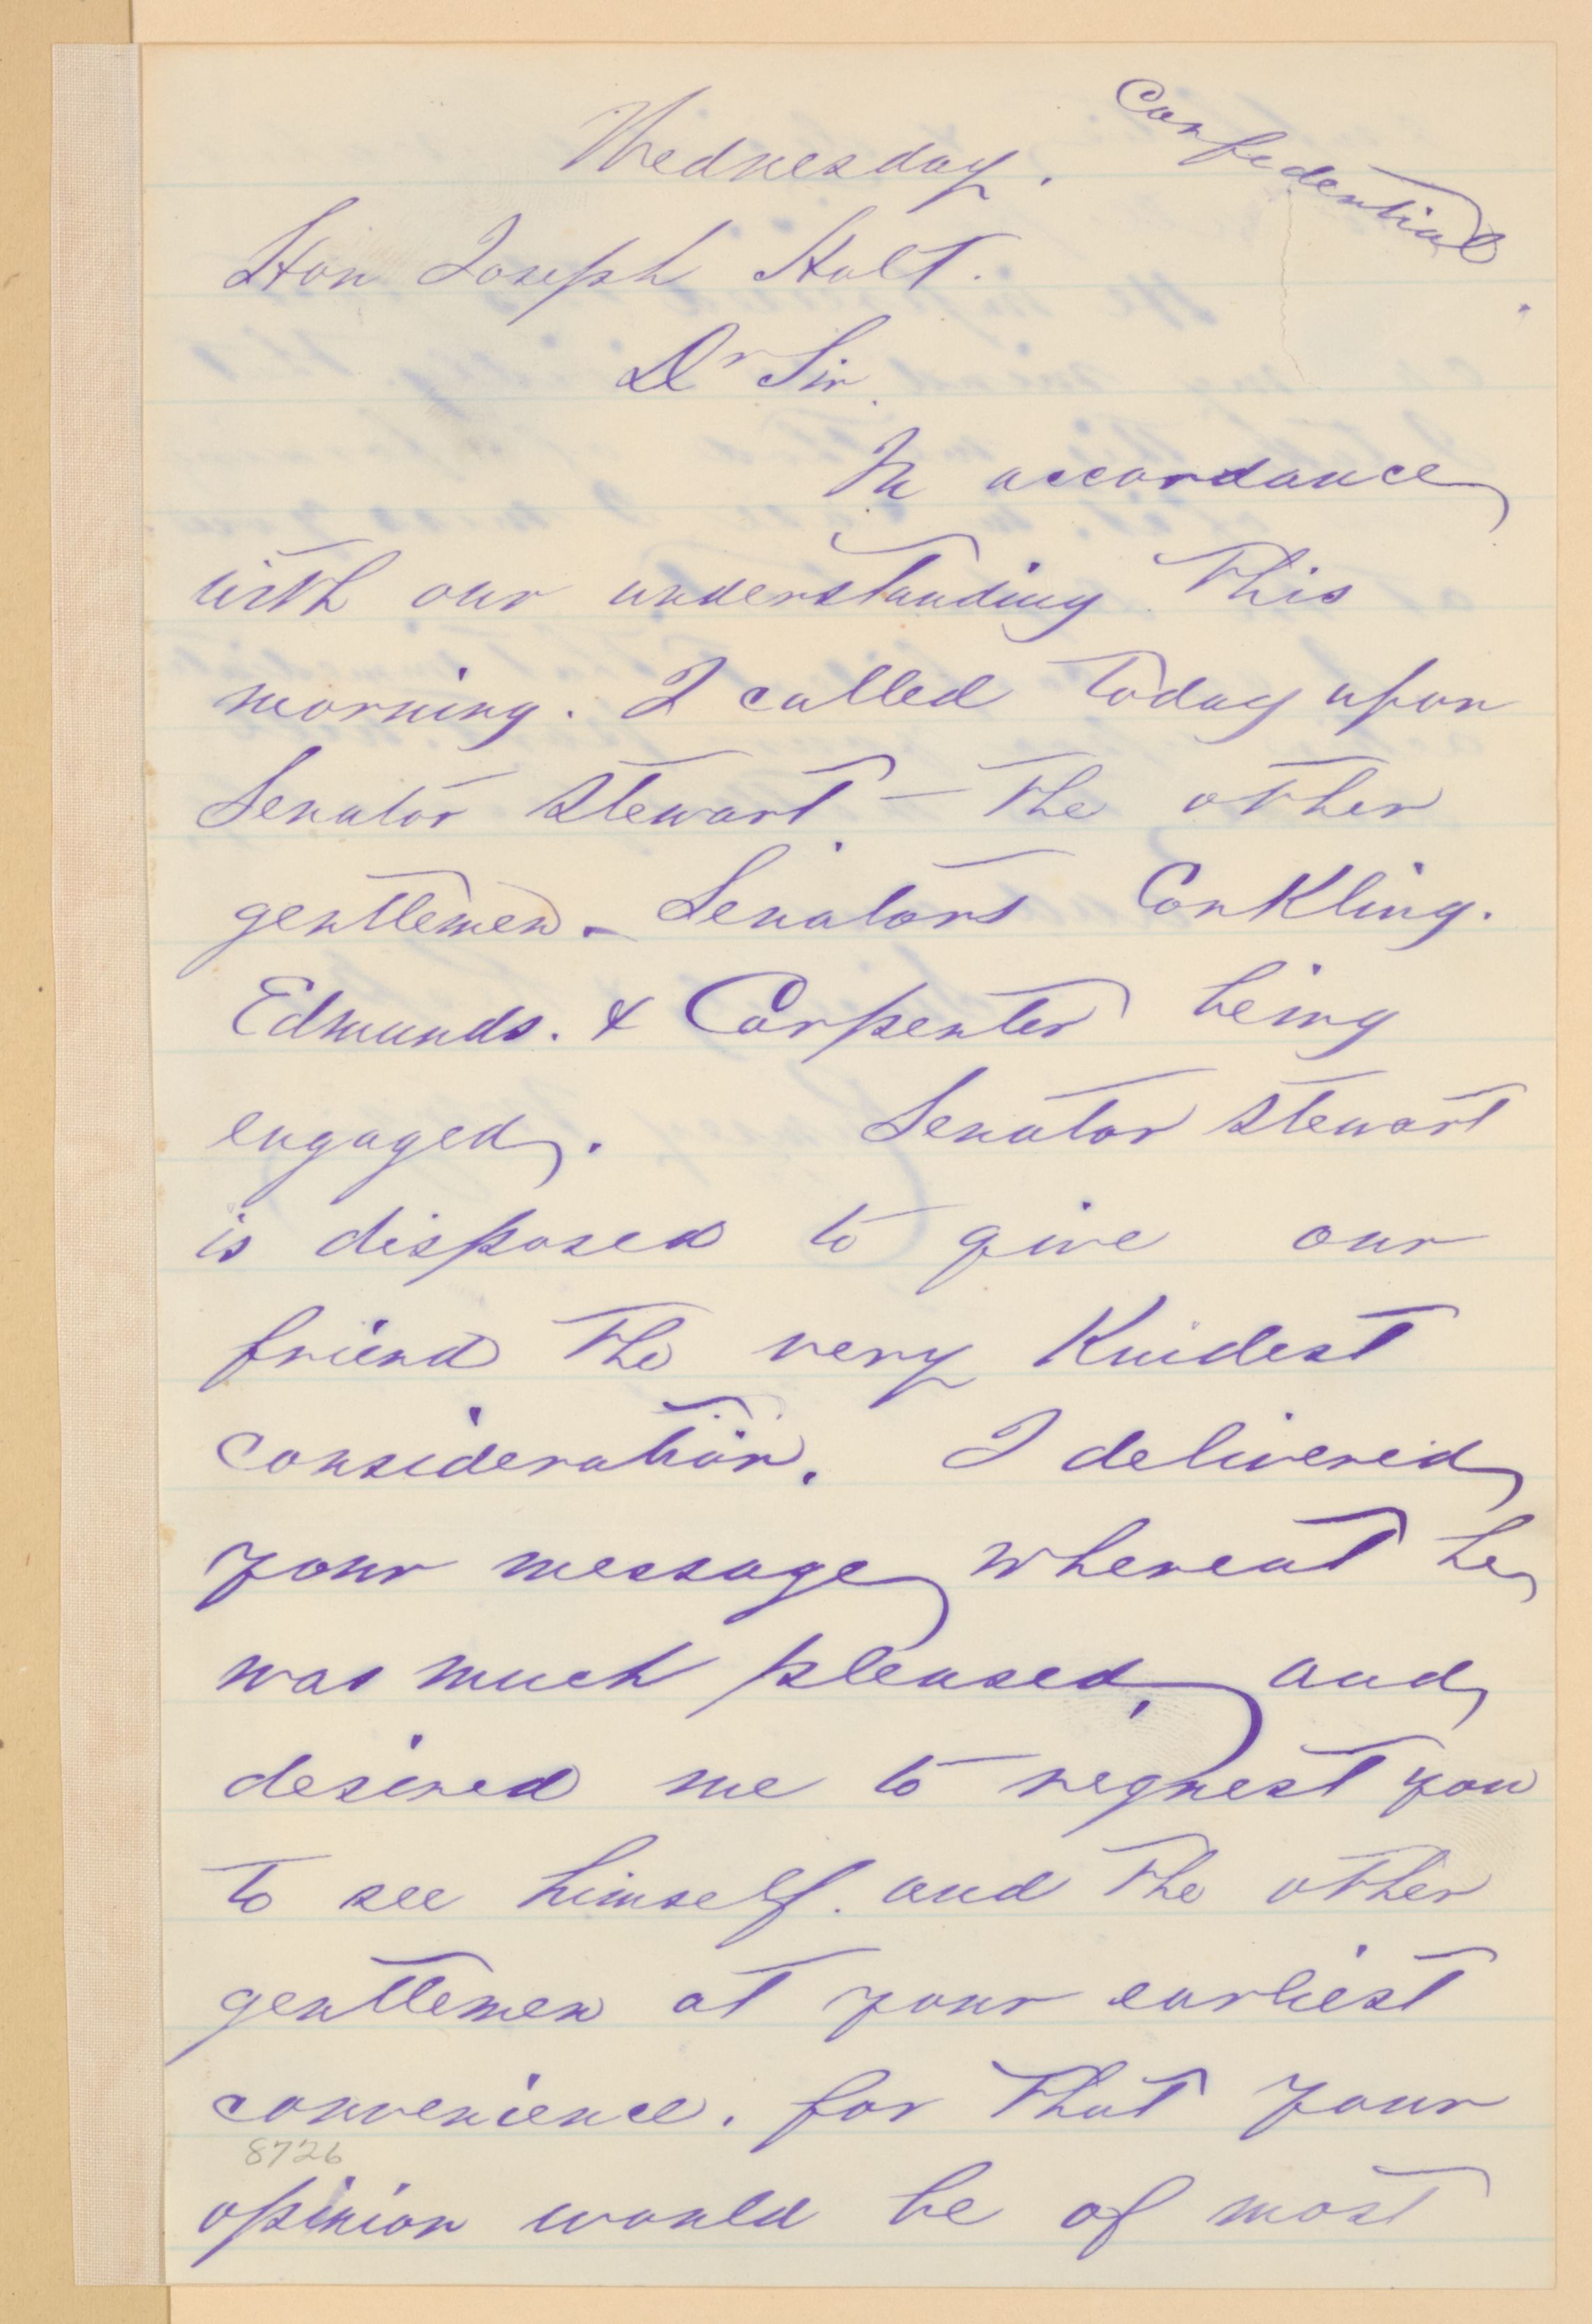 Confidential
Wednesday.
Hon Joseph Holt.
Dr Sir.
In accordance
with our understanding this
morning. I called today upon
Senator Stewart - the other
gentlemen - Senators Conkling.
Edmunds. & Carpenter being
engaged. Senator Stewart
is disposed to give our
friend the very kindest
consideration. I delivered
your message whereat he
was much pleased, and
desired me to request you
to see himself. and the other
gentlemen at your earliest
convenience. for that your
8726
opinion would be of most